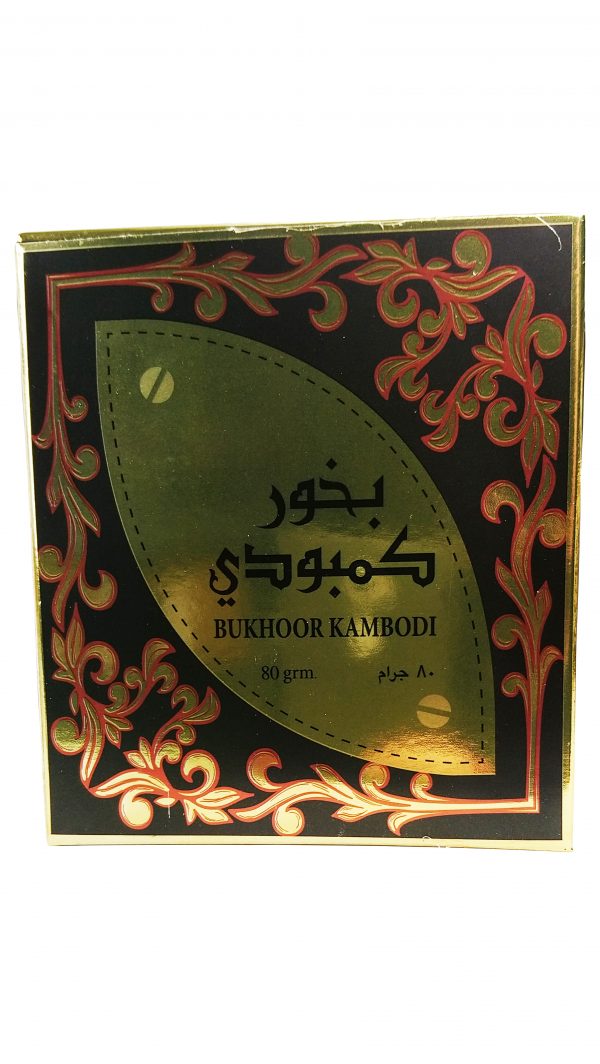 بخور
كمبودي
BUKHOOR KAMBODI
80 grm. ٨٠ جرام